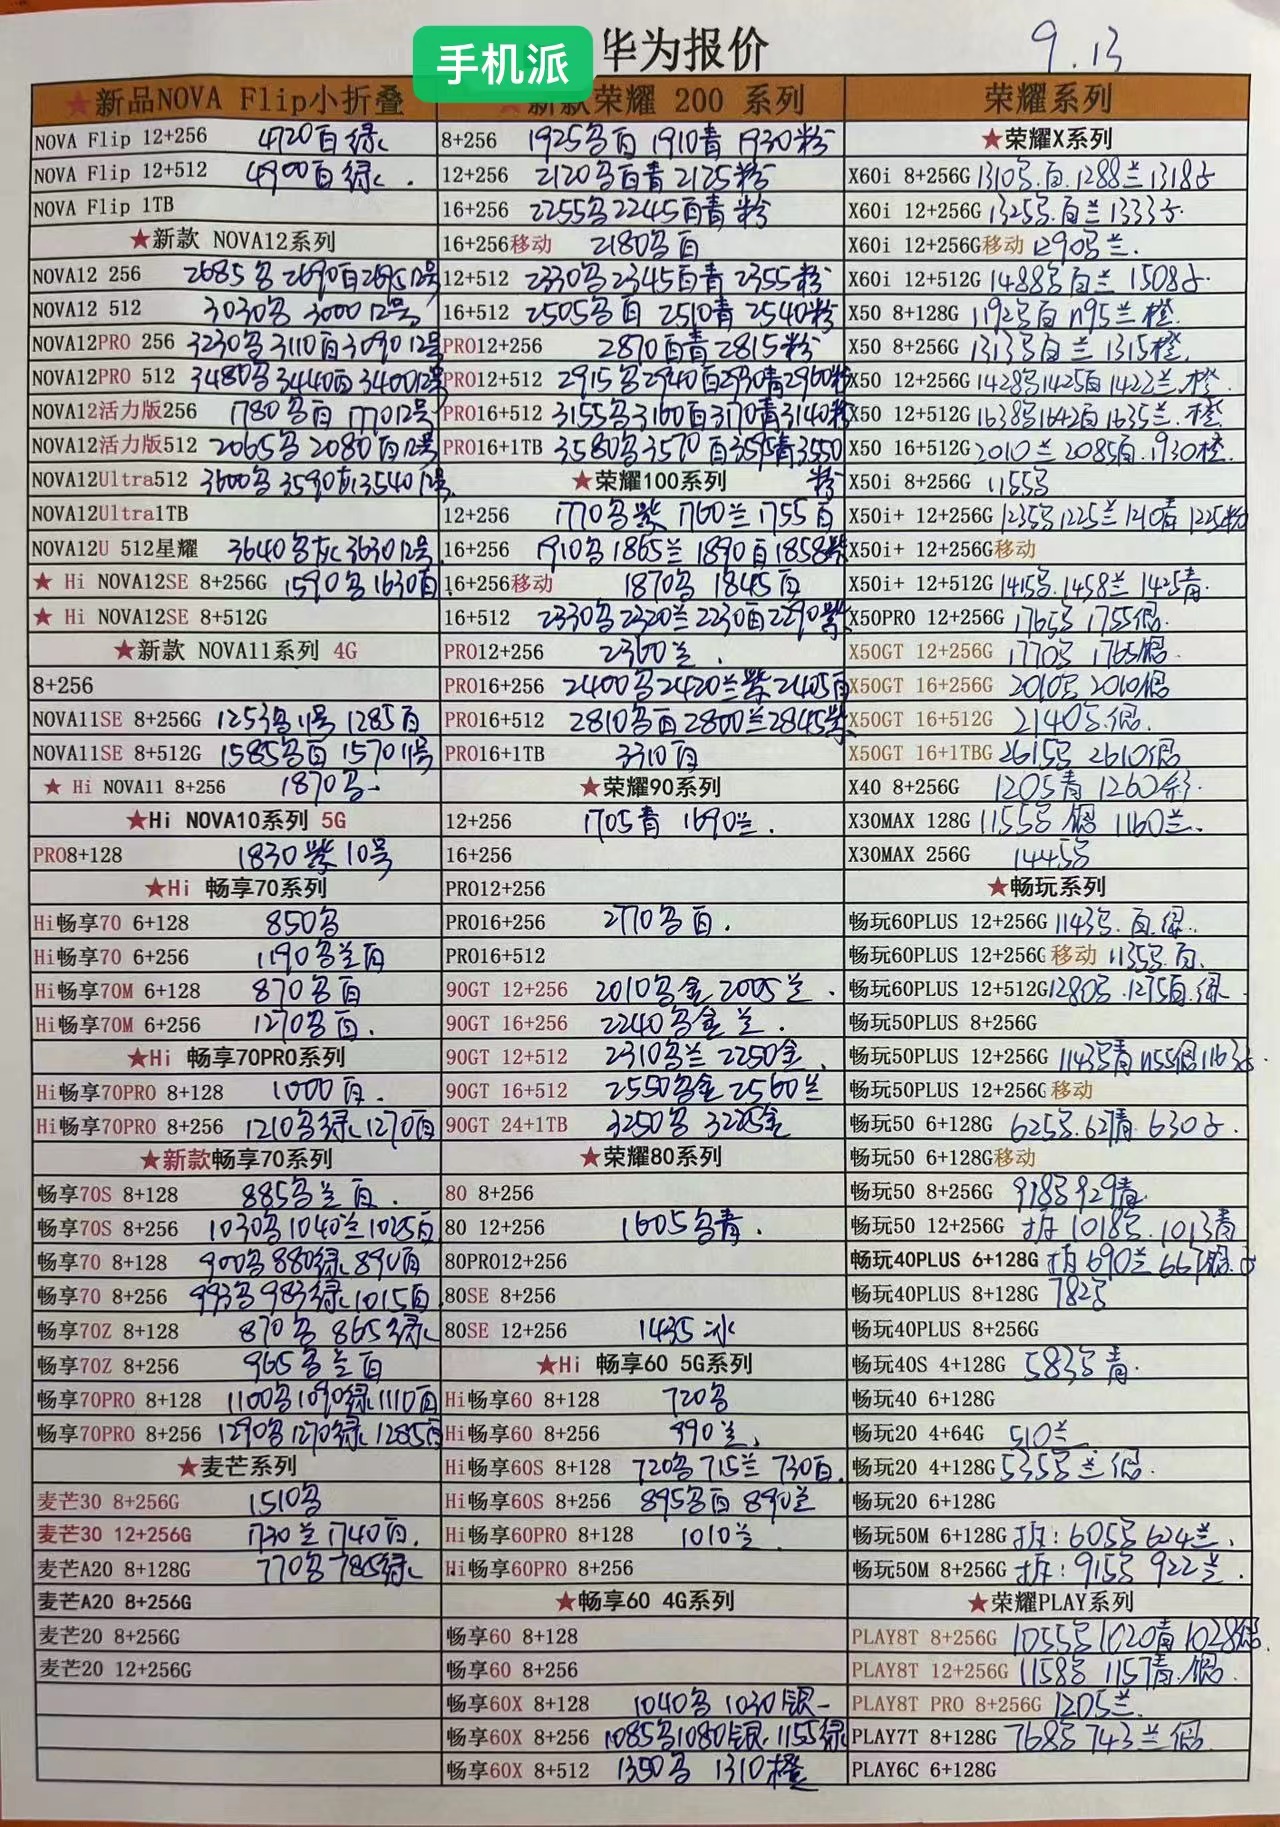 手机派
华为报价
9.13
★新品NOVA Flip小折叠
NOVA Flip 12+256 4720白绿
NOVA Flip 12+512 4900白绿.
NOVA Flip 1TB
★新款 NOVA12系列
NOVA12 256 2685黑2690白2695 12号
NOVA12 512 3030黑 3000 12号
NOVA12PRO 256 3230黑3110白3090 12号
NOVA12PRO 512 3480黑3440白3400 12号
NOVA12活力版256 1780黑白 1770 12号
NOVA12活力版512 2065黑2080白12号
NOVA12Ultra512 3600黑3590灰3540 12号
NOVA12Ultra1TB
NOVA12U 512星耀 3640黑灰3630 12号
★ Hi NOVA12SE 8+256G 1590黑1630白
★ Hi NOVA12SE 8+512G
★新款 NOVA11系列 4G
8+256
NOVA11SE 8+256G 1253黑11号 1285白
NOVA11SE 8+512G 1585黑白 1570 11号
★ Hi NOVA11 8+256 1870黑
★Hi NOVA10系列 5G
PRO8+128 1830紫10号
★Hi 畅享70系列
Hi畅享70 6+128 850黑
Hi畅享70 6+256 1190黑兰白
Hi畅享70M 6+128 870黑白
Hi畅享70M 6+256 1270黑白.
★Hi 畅享70PRO系列
Hi畅享70PRO 8+128 1000白.
Hi畅享70PRO 8+256 1210黑绿1270白
★新款畅享70系列
畅享70S 8+128 885黑兰白.
畅享70S 8+256 1030黑1040兰1025白
畅享70 8+128 900黑880绿890白
畅享70 8+256 993黑983绿1015白
畅享70Z 8+128 870黑 865绿
畅享70Z 8+256 965黑兰白
畅享70PRO 8+128 1100黑1090绿1110白
畅享70PRO 8+256 1290黑1270绿1285白
★麦芒系列
麦芒30 8+256G 1510黑
麦芒30 12+256G 1730兰1740白.
麦芒A20 8+128G 770黑785绿
麦芒A20 8+256G
麦芒20 8+256G
麦芒20 12+256G
★新款荣耀 200 系列
8+256 1925黑白 1910青 1930粉
12+256 2120黑白青2125粉
16+256 2255黑2245白青粉
16+256移动 2180黑白
12+512 2330黑2345白青 2355粉
16+512 2505黑白 2510青 2540粉
PRO12+256 2810白青2815粉
PRO12+512 2915黑2940白2930青2960粉
PRO16+512 3155黑3160白3170青3140粉
PRO16+1TB 3580黑3570白3595青3550粉
★荣耀100系列
12+256 1770黑紫 1760兰1755白
16+256 1910黑1865兰1890白1858紫
16+256移动 1870黑 1845白
16+512 2330黑2320兰2230白2290紫
PRO12+256 2360兰.
PRO16+256 2400黑2420兰紫2405白
PRO16+512 2810黑白2800兰2845紫
PRO16+1TB 3310白
★荣耀90系列
12+256 1705青 1690兰.
16+256
PRO12+256
PRO16+256 2770黑白.
PRO16+512
90GT 12+256 2010黑金2005兰.
90GT 16+256 2240黑金兰.
90GT 12+512 2310黑兰2250金.
90GT 16+512 2550黑金2560兰
90GT 24+1TB 3250黑 3225金
★荣耀80系列
80 8+256
80 12+256 1605黑青.
80PRO12+256
80SE 8+256
80SE 12+256 1435冰
★Hi 畅享60 5G系列
Hi畅享60 8+128 720黑
Hi畅享60 8+256 990兰.
Hi畅享60S 8+128 720黑715兰730白.
Hi畅享60S 8+256 895黑白890兰
Hi畅享60PRO 8+128 1010兰.
Hi畅享60PRO 8+256
★畅享60 4G系列
畅享60 8+128
畅享60 8+256
畅享60X 8+128 1040黑 1030银
畅享60X 8+256 1085黑1080银.1155绿
畅享60X 8+512 1350黑 1310橙
荣耀系列
★荣耀X系列
X60i 8+256G 1310黑.白.1288兰1318紫
X60i 12+256G 1325黑.白兰1333紫.
X60i 12+256G移动 1290黑兰.
X60i 12+512G 1488黑白兰 1508紫.
X50 8+128G 1192黑白 1195兰橙.
X50 8+256G 1313黑白兰 1315橙.
X50 12+256G 1428黑1425白1422兰.橙
X50 12+512G 1638黑1642白1635兰.橙
X50 16+512G 2010兰2085白.1930橙.
X50i 8+256G 1155黑
X50i+ 12+256G 1235黑1225兰1210青1225粉
X50i+ 12+256G移动
X50i+ 12+512G 1415黑.1458兰1425青.
X50PRO 12+256G 1765黑 1755银.
X50GT 12+256G 1770黑 1765银.
X50GT 16+256G 2010黑 2010银
X50GT 16+512G 2140黑.银.
X50GT 16+1TBG 2615黑 2610银
X40 8+256G 1205青 1260彩.
X30MAX 128G 1155黑 银 1160兰.
X30MAX 256G 1445黑
★畅玩系列
畅玩60PLUS 12+256G 1143黑.白.绿.
畅玩60PLUS 12+256G移动 1135黑.白.
畅玩60PLUS 12+512G 1280黑.1275白.绿.
畅玩50PLUS 8+256G
畅玩50PLUS 12+256G 1143黑青1155银1163紫.
畅玩50PLUS 12+256G移动
畅玩50 6+128G 625黑.627青.630紫.
畅玩50 6+128G移动
畅玩50 8+256G 918黑929青
畅玩50 12+256G 拆1018黑.1013青
畅玩40PLUS 6+128G 拆690兰667银.
畅玩40PLUS 8+128G 782黑
畅玩40PLUS 8+256G
畅玩40S 4+128G 583黑青.
畅玩40 6+128G
畅玩20 4+64G 510兰
畅玩20 4+128G 535黑兰银.
畅玩20 6+128G
畅玩50M 6+128G 拆:605黑624兰.
畅玩50M 8+256G 拆:915黑 922兰.
★荣耀PLAY系列
PLAY8T 8+256G 1055黑1020青1028银.
PLAY8T 12+256G 1158黑 1157青.银.
PLAY8T PRO 8+256G 1205兰.
PLAY7T 8+128G 768黑743兰银.
PLAY6C 6+128G